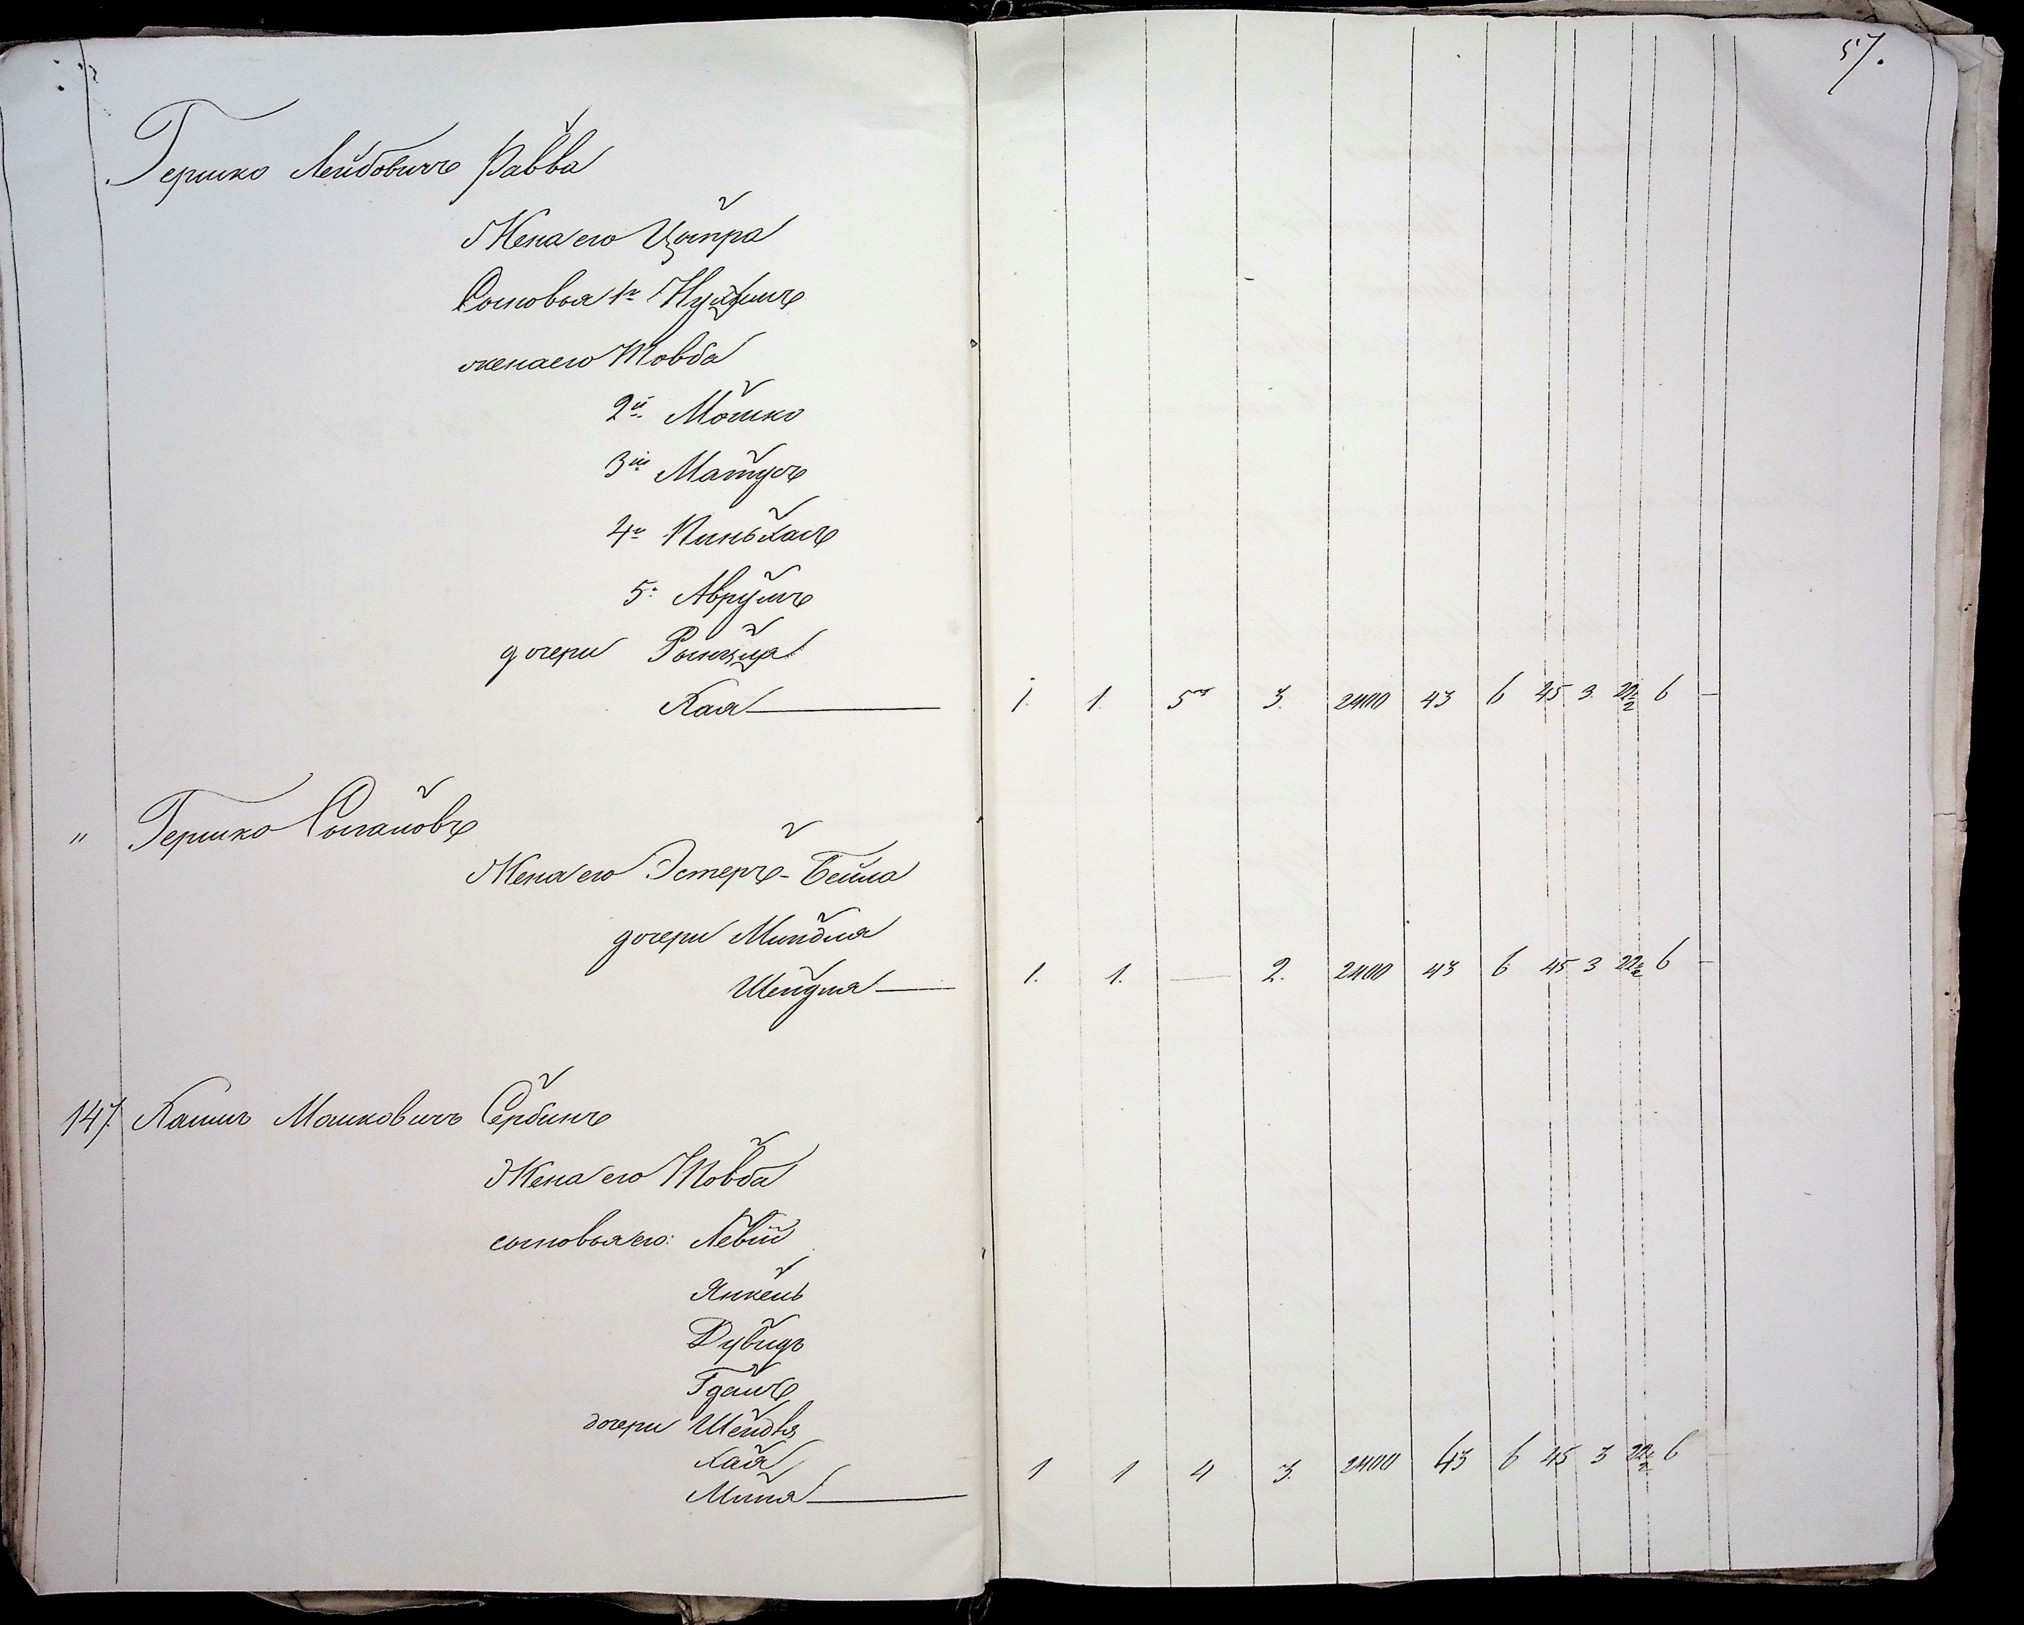 57.
Гершко Лейбовичъ Равва
Жена его Цыпра
Сыновья 1й Нухимъ
жена его Товба
2й Мошко
3й Матусъ
4й Пиньхасъ
5. Аврумъ
дочери
Хая 1. 1 5 3. 2400 43 6 45 3. 22½ 6 —
" Гершко
Жена его Эстеръ-Бейла
дочери Миндля
Шейндля 1. 1. — 2. 2400 43 6 45 3 22½ 6 —
147. Хаимъ Мошковичъ Сербинъ
Жена его Товба
сыновья его: Левій
Янкель
Дувидъ
дочери Шейдля
Хая
Миня 1 1 4 3. 2400 43 6 45 3 22½ 6 —